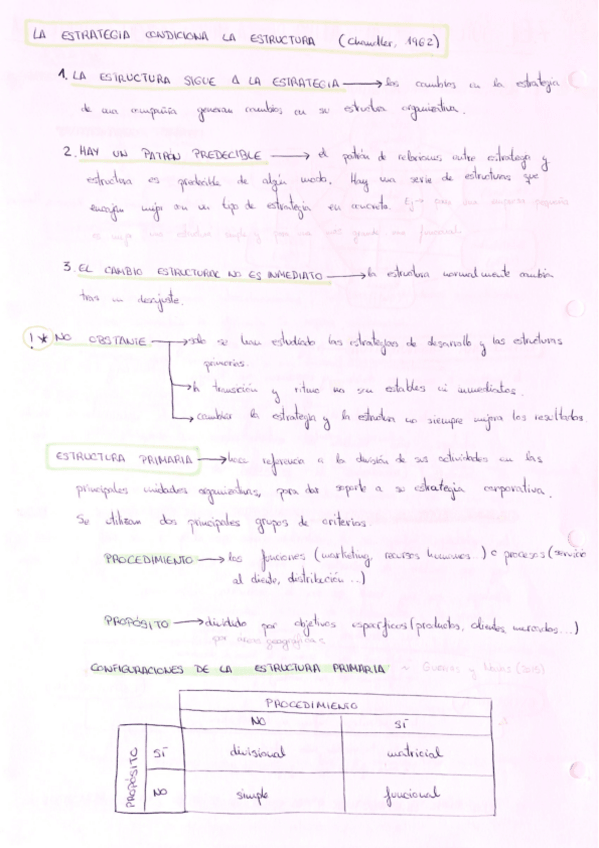 LA ESTRATEGIA CONDICIONA LA ESTRUCTURA (Chandler, 1962)
1. LA ESTRUCTURA SIGUE A LA ESTRATEGIA → los cambios en la estrategia
de una compañía generan cambios en su estructura organizativa.
2. HAY UN PATRÓN PREDECIBLE → el patrón de relaciones entre estrategia y
estructura es predecible de algún modo. Hay una serie de estructuras que
encajan mejor con un tipo de estrategia en concreto. Ej → para una empresa pequeña
es mejor una estructura simple y para una más grande una funcional.
3. EL CAMBIO ESTRUCTURAL NO ES INMEDIATO → la estructura normalmente cambia
tras un desajuste.
! * NO OBSTANTE → solo se han estudiado las estrategias de desarrollo y las estructuras
primarias.
→ la transición y ritmo no son estables ni inmediatos.
→ cambiar la estrategia y la estructura no siempre mejora los resultados
ESTRUCTURA PRIMARIA → hace referencia a la división de sus actividades en las
principales unidades organizativas, para dar soporte a su estrategia corporativa.
Se utilizan dos principales grupos de criterios.
PROCEDIMIENTO → las funciones (marketing, recursos humanos...) o procesos (servicio
al cliente, distribución...)
PROPÓSITO → dividido por objetivos específicos (productos, clientes, mercados...)
por áreas geográficas
CONFIGURACIONES DE LA ESTRUCTURA PRIMARIA ~ Guerras y Navas (2015)
PROCEDIMIENTO
NO SÍ
PROPÓSITO
SÍ divisional matricial
NO simple funcional